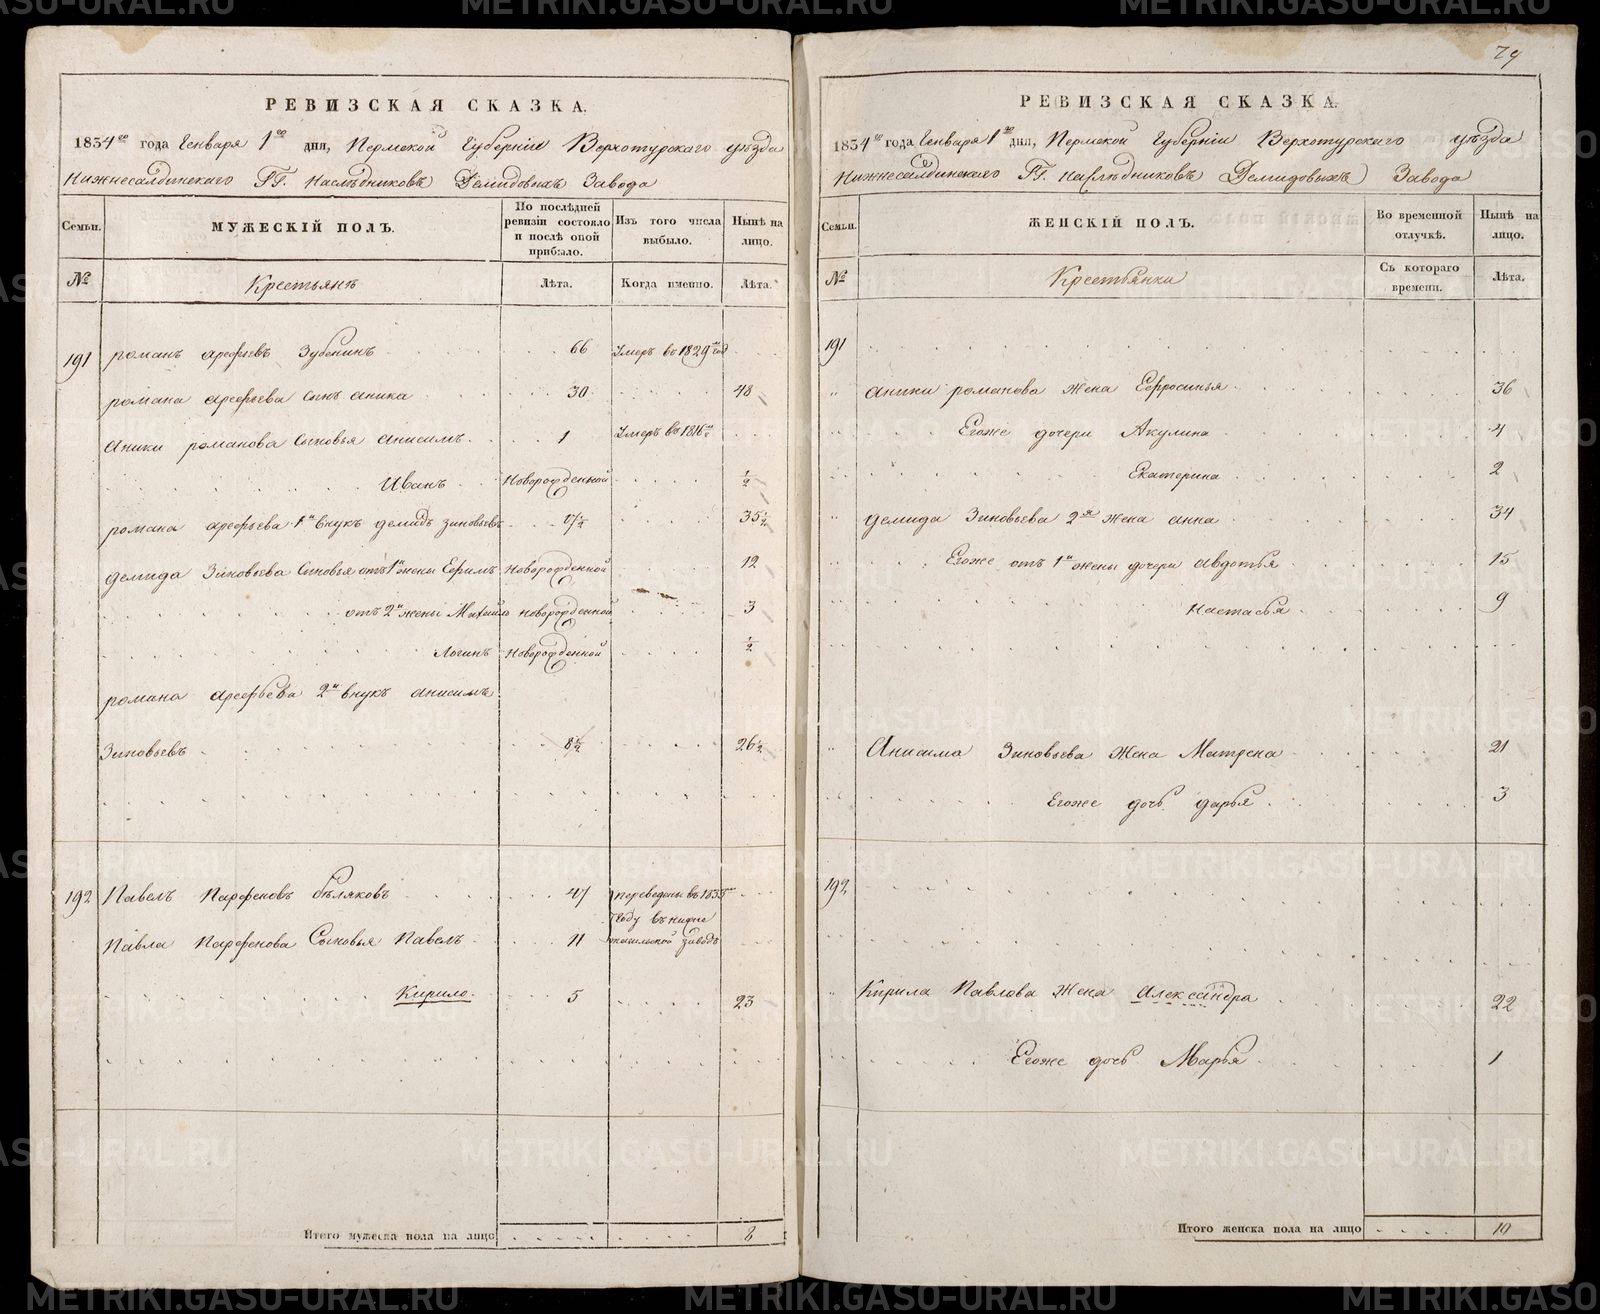 РЕВИЗСКАЯ СКАЗКА.
1834го года Генваря 1го дня, Пермской Губернiи Верхотурскаго уѣзда
Нижнесалдинскаго ГГ. Наслѣдниковъ Демидовыхъ Завода
Семьи. МУЖЕСКIЙ ПОЛЪ. По послѣдней ревизiи состояло и послѣ оной прибыло. Изъ того числа выбыло. Нынѣ на лицо.
№ Крестьянъ Лѣта. Когда именно. Лѣта.
191 романъ арефьевъ Зубенинъ 66 Умеръ въ 1829м год
романа арефьева сынъ аника 30 48
Аники романова Сыновья анисимъ 1 Умеръ въ 1816м
Иванъ Новорожденной ½
романа арефьева 1й внукъ демидъ зиновьевъ 17½ 35½
демида Зиновьева Сыновья отъ 1й жены Ефримъ Новорожденной 12
отъ 2й жены Михайло новорожденной 3
Логинъ Новорожденной ½
романа арефьева 2й внукъ анисимъ
Зиновьевъ 8½ 26½
192 Павелъ Парфеновъ бѣляковъ 47 переведены въ 1833м
году въ нижне
Павла Парфенова Сыновья Павелъ 11 тагильской заводъ
Кирило 5 23
Итого мужеска пола на лицо 8
79
РЕВИЗСКАЯ СКАЗКА.
1834го года Генваря 1го дня, Пермской Губернiи Верхотурскаго уѣзда
Нижнесалдинскаго ГГ. наслѣдниковъ Демидовыхъ Завода
Семьи. ЖЕНСКIЙ ПОЛЪ. Во временной отлучкѣ. Нынѣ на лицо.
№ Крестьянки Съ котораго времени. Лѣта.
191
аники романова жена Ефросинья 36
Егоже дочери Акулина 4
Екатерина 2
демида Зиновьева 2я жена анна 34
Егоже отъ 1й жены дочери авдотья 15
Настасья 9
Анисима Зиновьева жена Матрена 21
Егоже дочь дарья 3
192
Кирила Павлова жена Александра 22
Егоже дочь Марья 1
Итого женска пола на лицо 10
METRIKI.GASO-URAL.RU